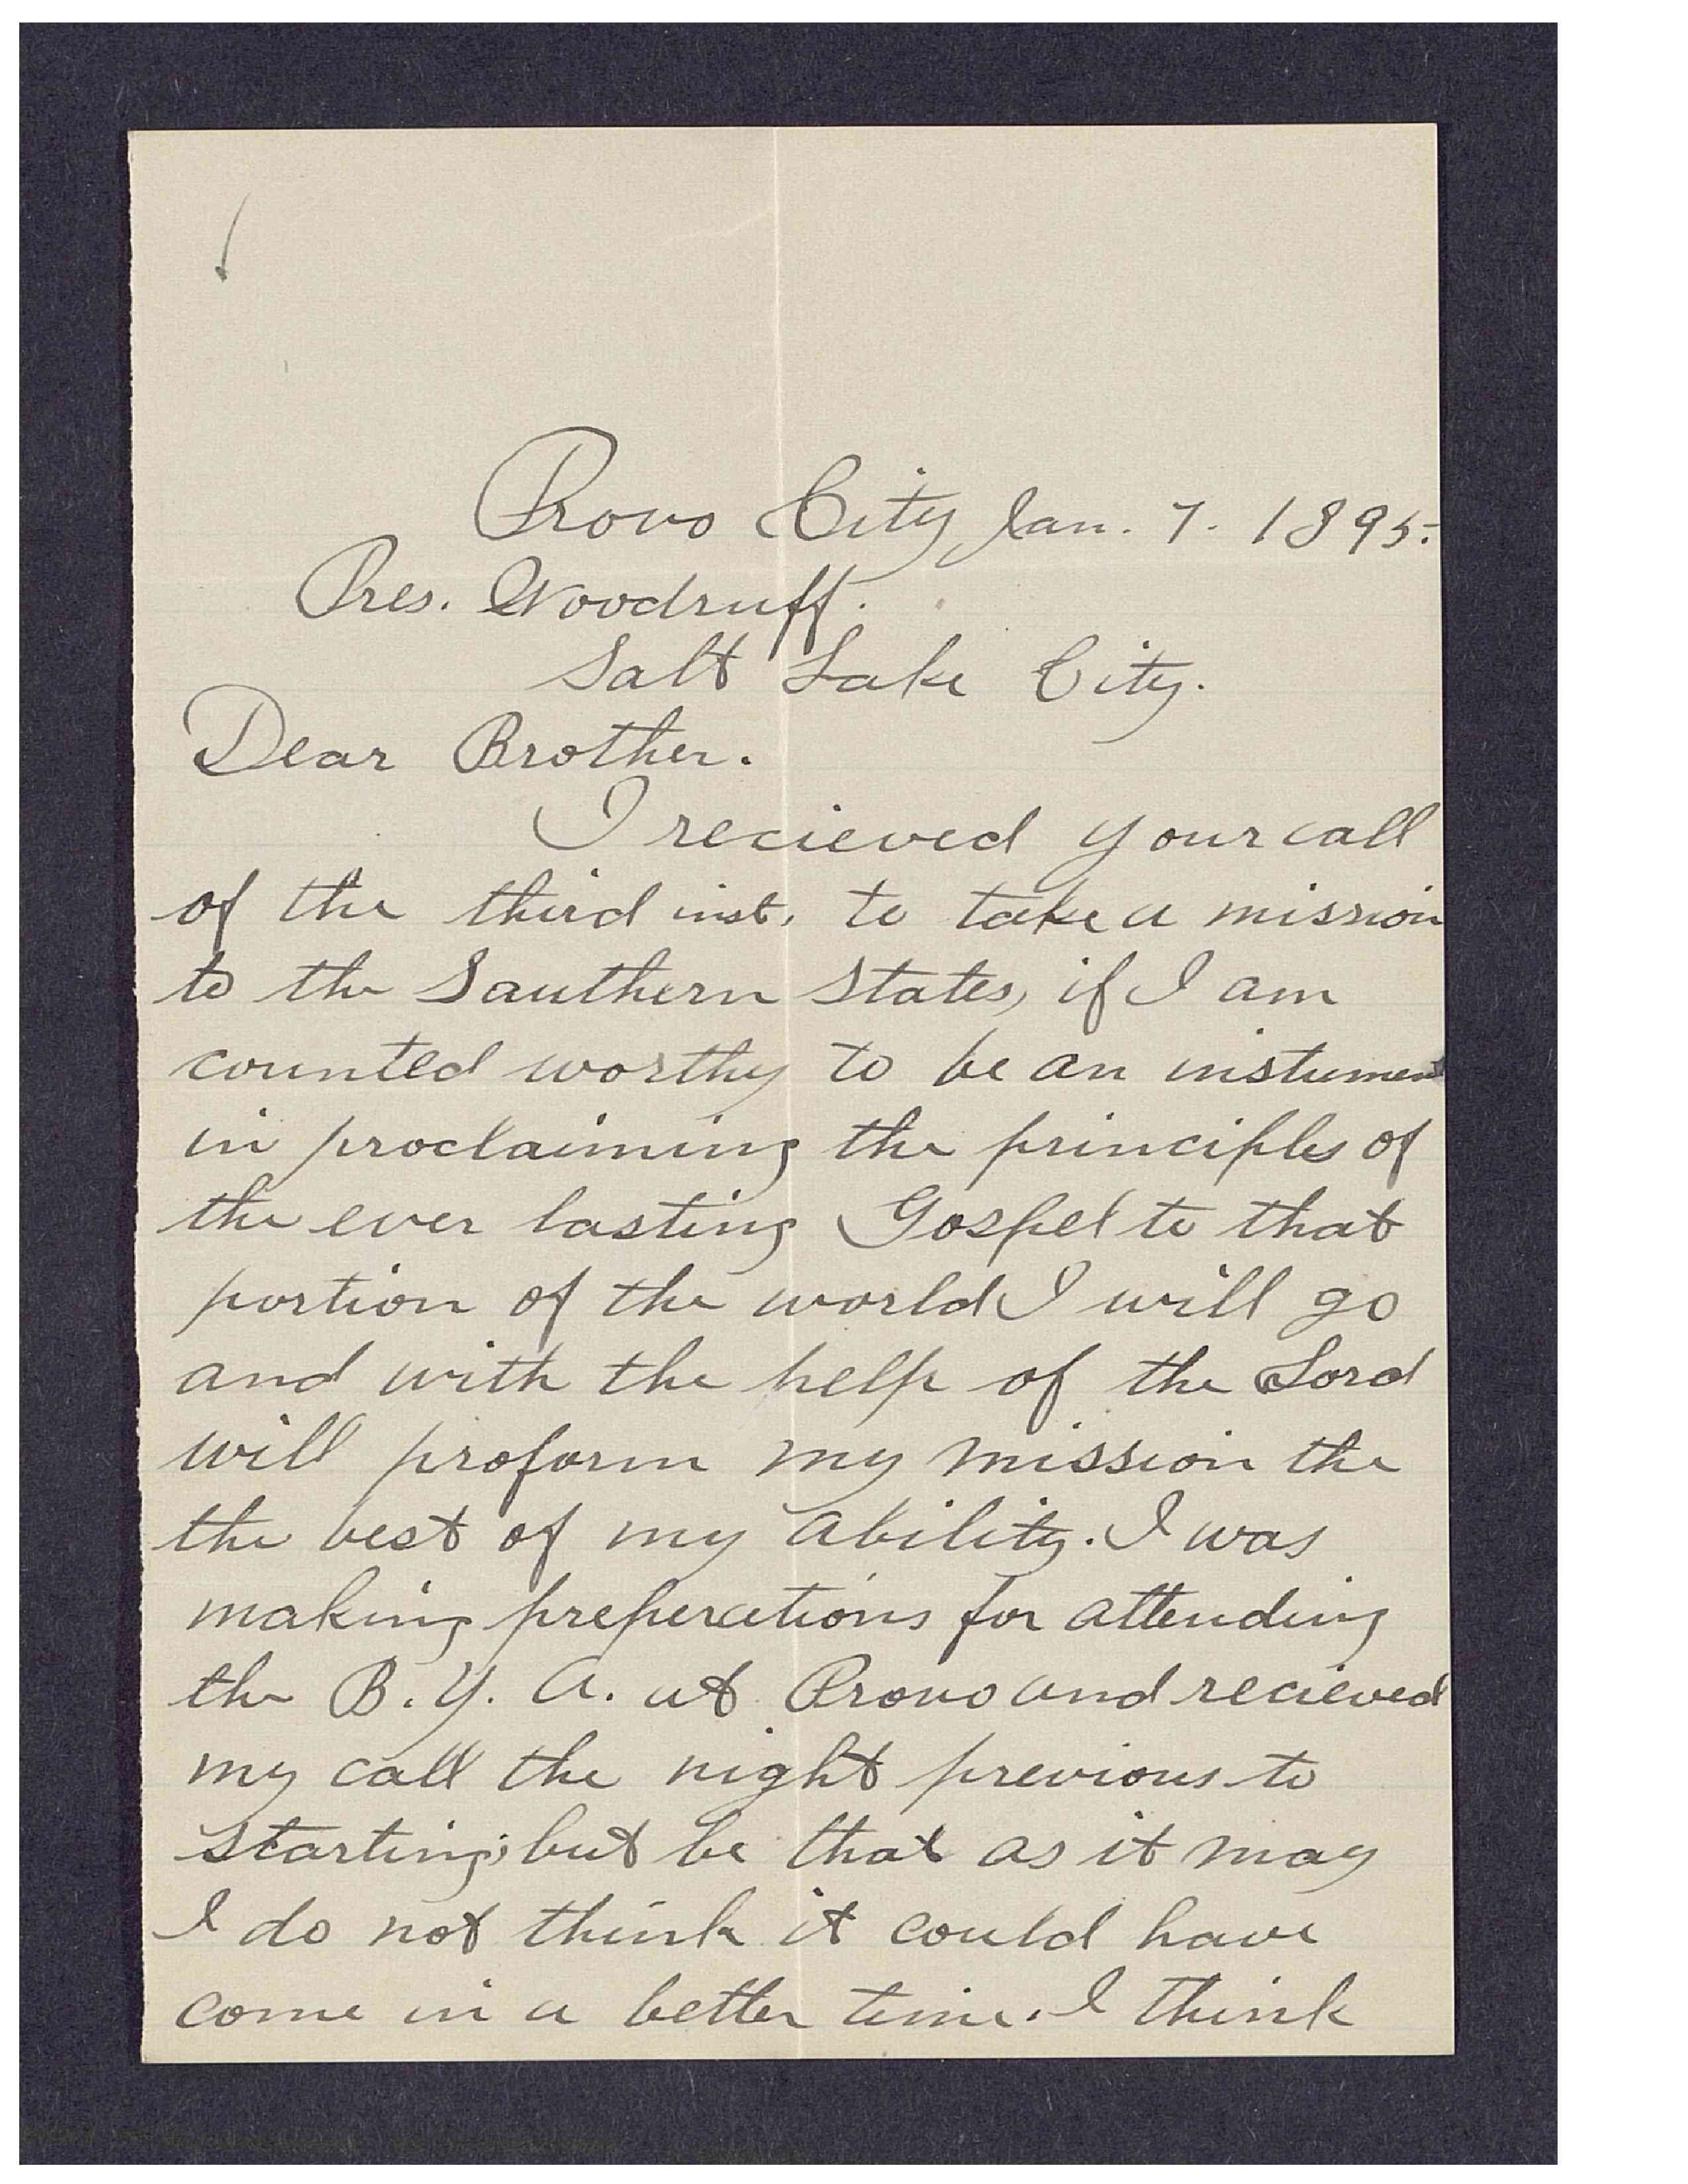 Provo City, Jan. 7. 1895.
Pres. Woodruff.
Salt Lake City.
Dear Brother.
I recieved your call
of the third inst, to take a mission
to the Southern States, if I am
counted worthy to be an instument
in proclaiming the principles of
the ever lasting Gospel to that
portion of the world I will go
and with the help of the Lord
will proform my mission the
the best of my ability. I was
making preperations for attending
the B. Y. A. at Provo and recieved
my call the night previous to
starting; but be that as it may
I do not think it could have
come in a better time. I think